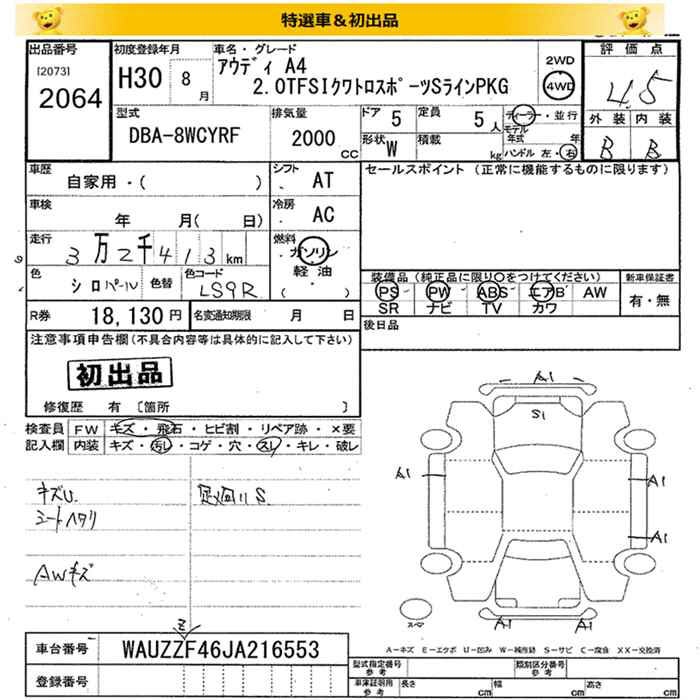 特選車＆初出品
出品番号
[2073]
2064
初度登録年月
H30 8月
車名・グレード
アウディ A4
2.0TFSIクワトロスポーツSラインPKG
2WD
4WD
評価点
4.5
外装 内装
B B
型式
DBA-8WCYRF
排気量
2000cc
ドア 5
定員 5人
形状 W
積載 kg
ディーラー・並行
モデル年式 年
ハンドル 左・右
車歴
自家用・( )
シフト
AT
セールスポイント (正常に機能するものに限ります)
車検
年 月( 日)
冷房
AC
走行
3万2千413km
燃料
ガソリン
軽油
( )
色
シロパール
色替
色コード
LS9R
装備品 (純正品に限り○をつけてください)
PS PW ABS エアB AW
SR ナビ TV カワ
新車保証書
有・無
R券 18,130円
名変通知期限 月 日
後日品
注意事項申告欄(不具合内容等は具体的に記入して下さい)
初出品
修復歴 有 [箇所 ]
検査員記入欄
FW キズ・飛石・ヒビ割・リペア跡・×要
内装 キズ・汚レ・コゲ・穴・スレ・キレ・破レ
キズU.
シートヘタリ
AWキズ
足廻リS.
A1
S1
A1
A1
A1
A1
A1
スペア
A=キズ E=エクボ U=凹み W=補修跡 S=サビ C=腐食 XX=交換済
Z
車台番号 WAUZZZF46JA216553
登録番号
型式指定番号 参考
類別区分番号 参考
車庫証明用 参考
長さ cm 幅 cm 高さ cm